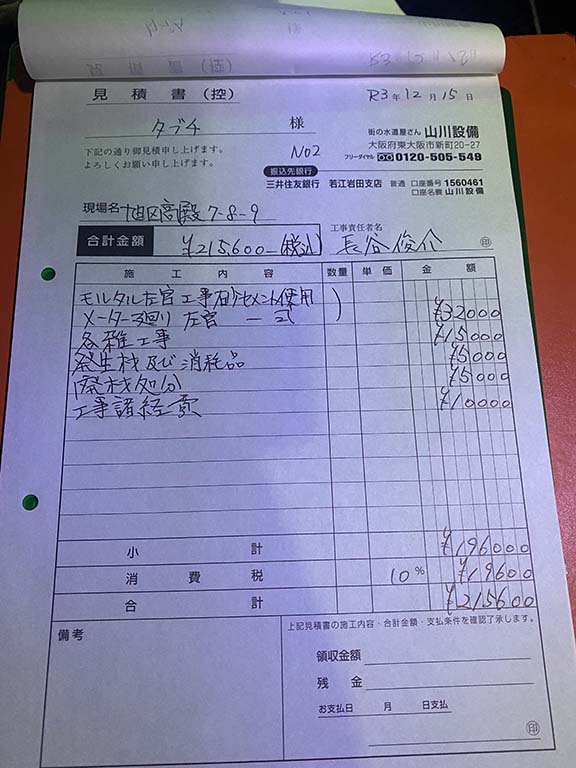 見積書(控)
R3年12月15日
タブチ 様
No2
下記の通り御見積申し上げます。
よろしくお願い申し上げます。
街の水道屋さん 山川設備
大阪府東大阪市新町20-27
フリーダイヤル 0120-505-549
振込先銀行
三井住友銀行 若江岩田支店 普通 口座番号 1560461
口座名義 山川設備
現場名 旭区高殿7-8-9
工事責任者名
合計金額 ¥215,600-(税込) 長谷俊介 印
施工内容 数量 単価 金額
モルタル左官工事 砂セメント使用
メーター廻り 左官 一式 ¥32000
各雑工事 ¥15000
発生材及び消耗品 ¥5000
廃材処分 ¥5000
工事諸経費 ¥10000
小計 ¥196000
消費税 10% ¥19600
合計 ¥215600
備考
上記見積書の施工内容・合計金額・支払条件を確認了承します。
領収金額
残金
お支払日 月 日支払
印